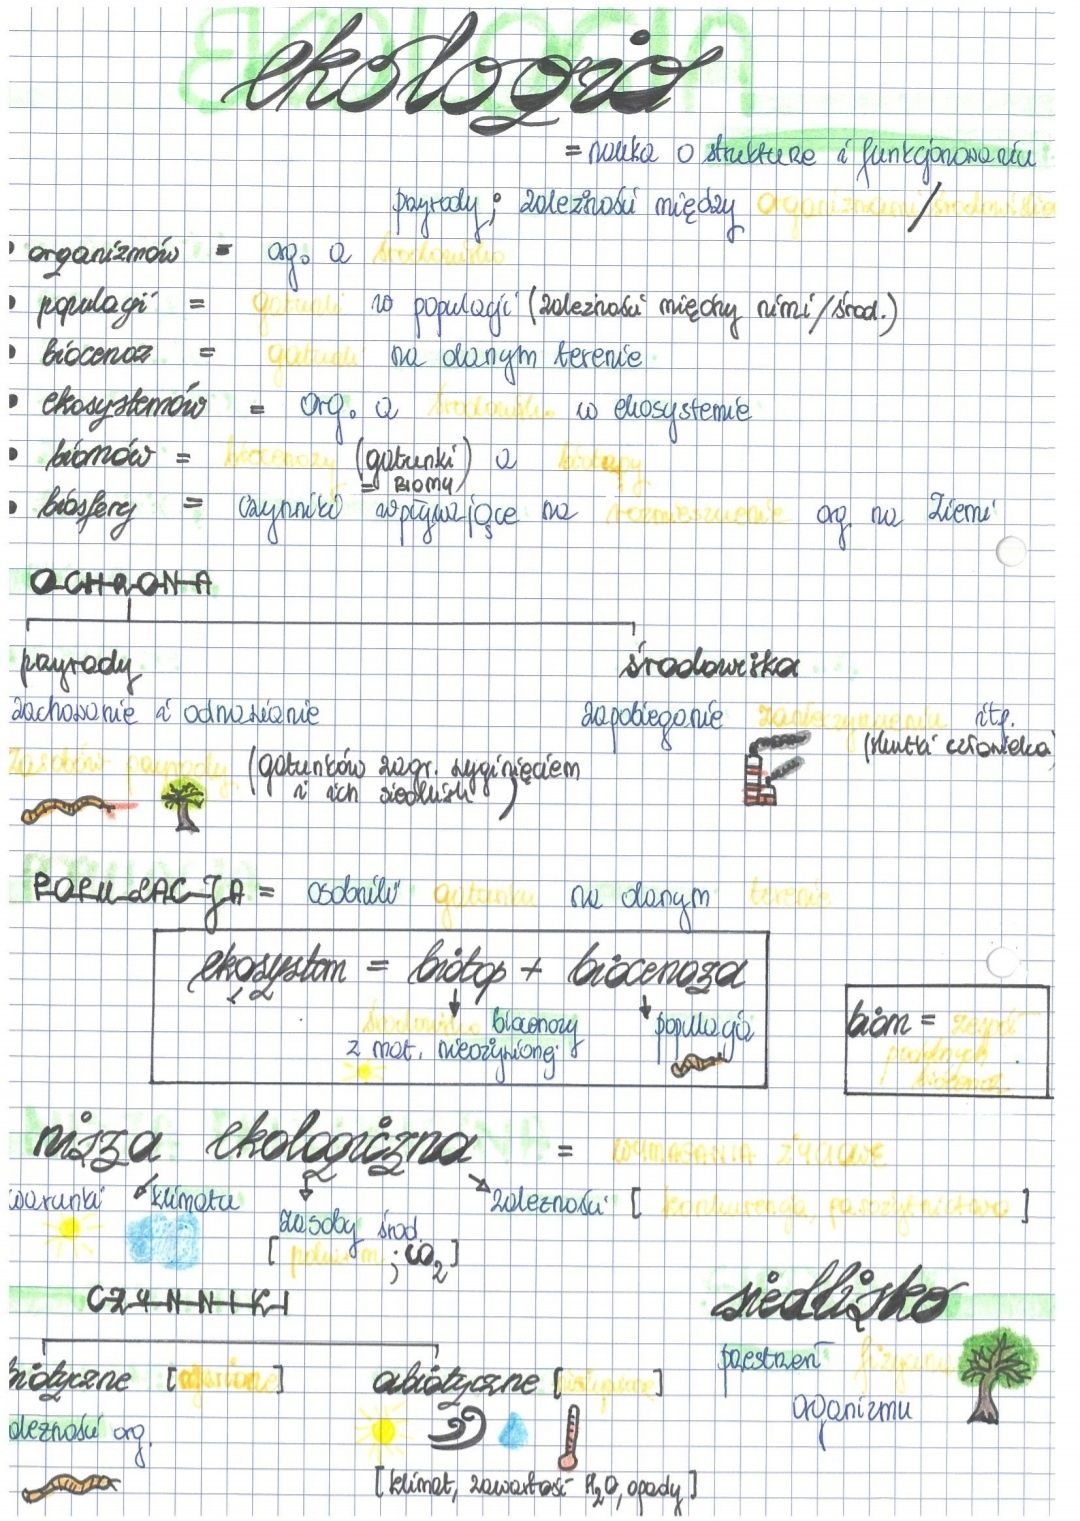 ekologia
= nauka o strukturze i funkcjonowaniu
przyrody; zależności między organizmami/środowiskiem
• organizmów = org. a środowisko
• populacji = gatunki w populacji (zależności między nimi/środ.)
• biocenoz = gatunki na danym terenie
• ekosystemów = org. a środowisko w ekosystemie
• biomów = biocenozy (gatunki) a biotopy
= BIOMY
• biosfery = czynniki wpływające na rozmieszczenie org na Ziemi
OCHRONA
przyrody środowiska
zachowanie i odnawianie zapobieganie zanieczyszczeniu itp.
(skutki człowieka)
zasobów przyrody (gatunków zagr. wyginięciem
i ich siedlisk)
POPULACJA = osobniki gatunku na danym terenie
ekosystem = biotop + biocenoza
środowisko biocenozy populacja
z mat. nieożywionej
biom = zespół
podobnych
biocenoz
nisza ekologiczna = WYMAGANIA ŻYCIOWE
warunki klimatu zależności [konkurencja, pasożytnictwo]
zasoby środ.
[pokarm; CO2]
CZYNNIKI
siedlisko
przestrzeń fizyczna
organizmu
biotyczne [ożywione] abiotyczne [nieożywione]
zależności org.
[klimat, zawartość H2O, opady]